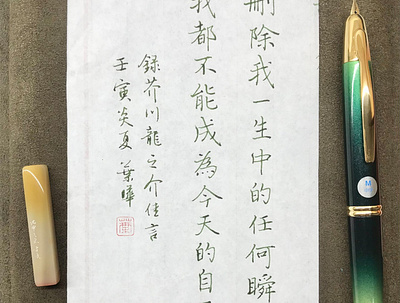 刪除我一生中的任何瞬
我都不能成為今天的自
錄芥川龍之介佳言
壬寅炎夏 葉曄
M